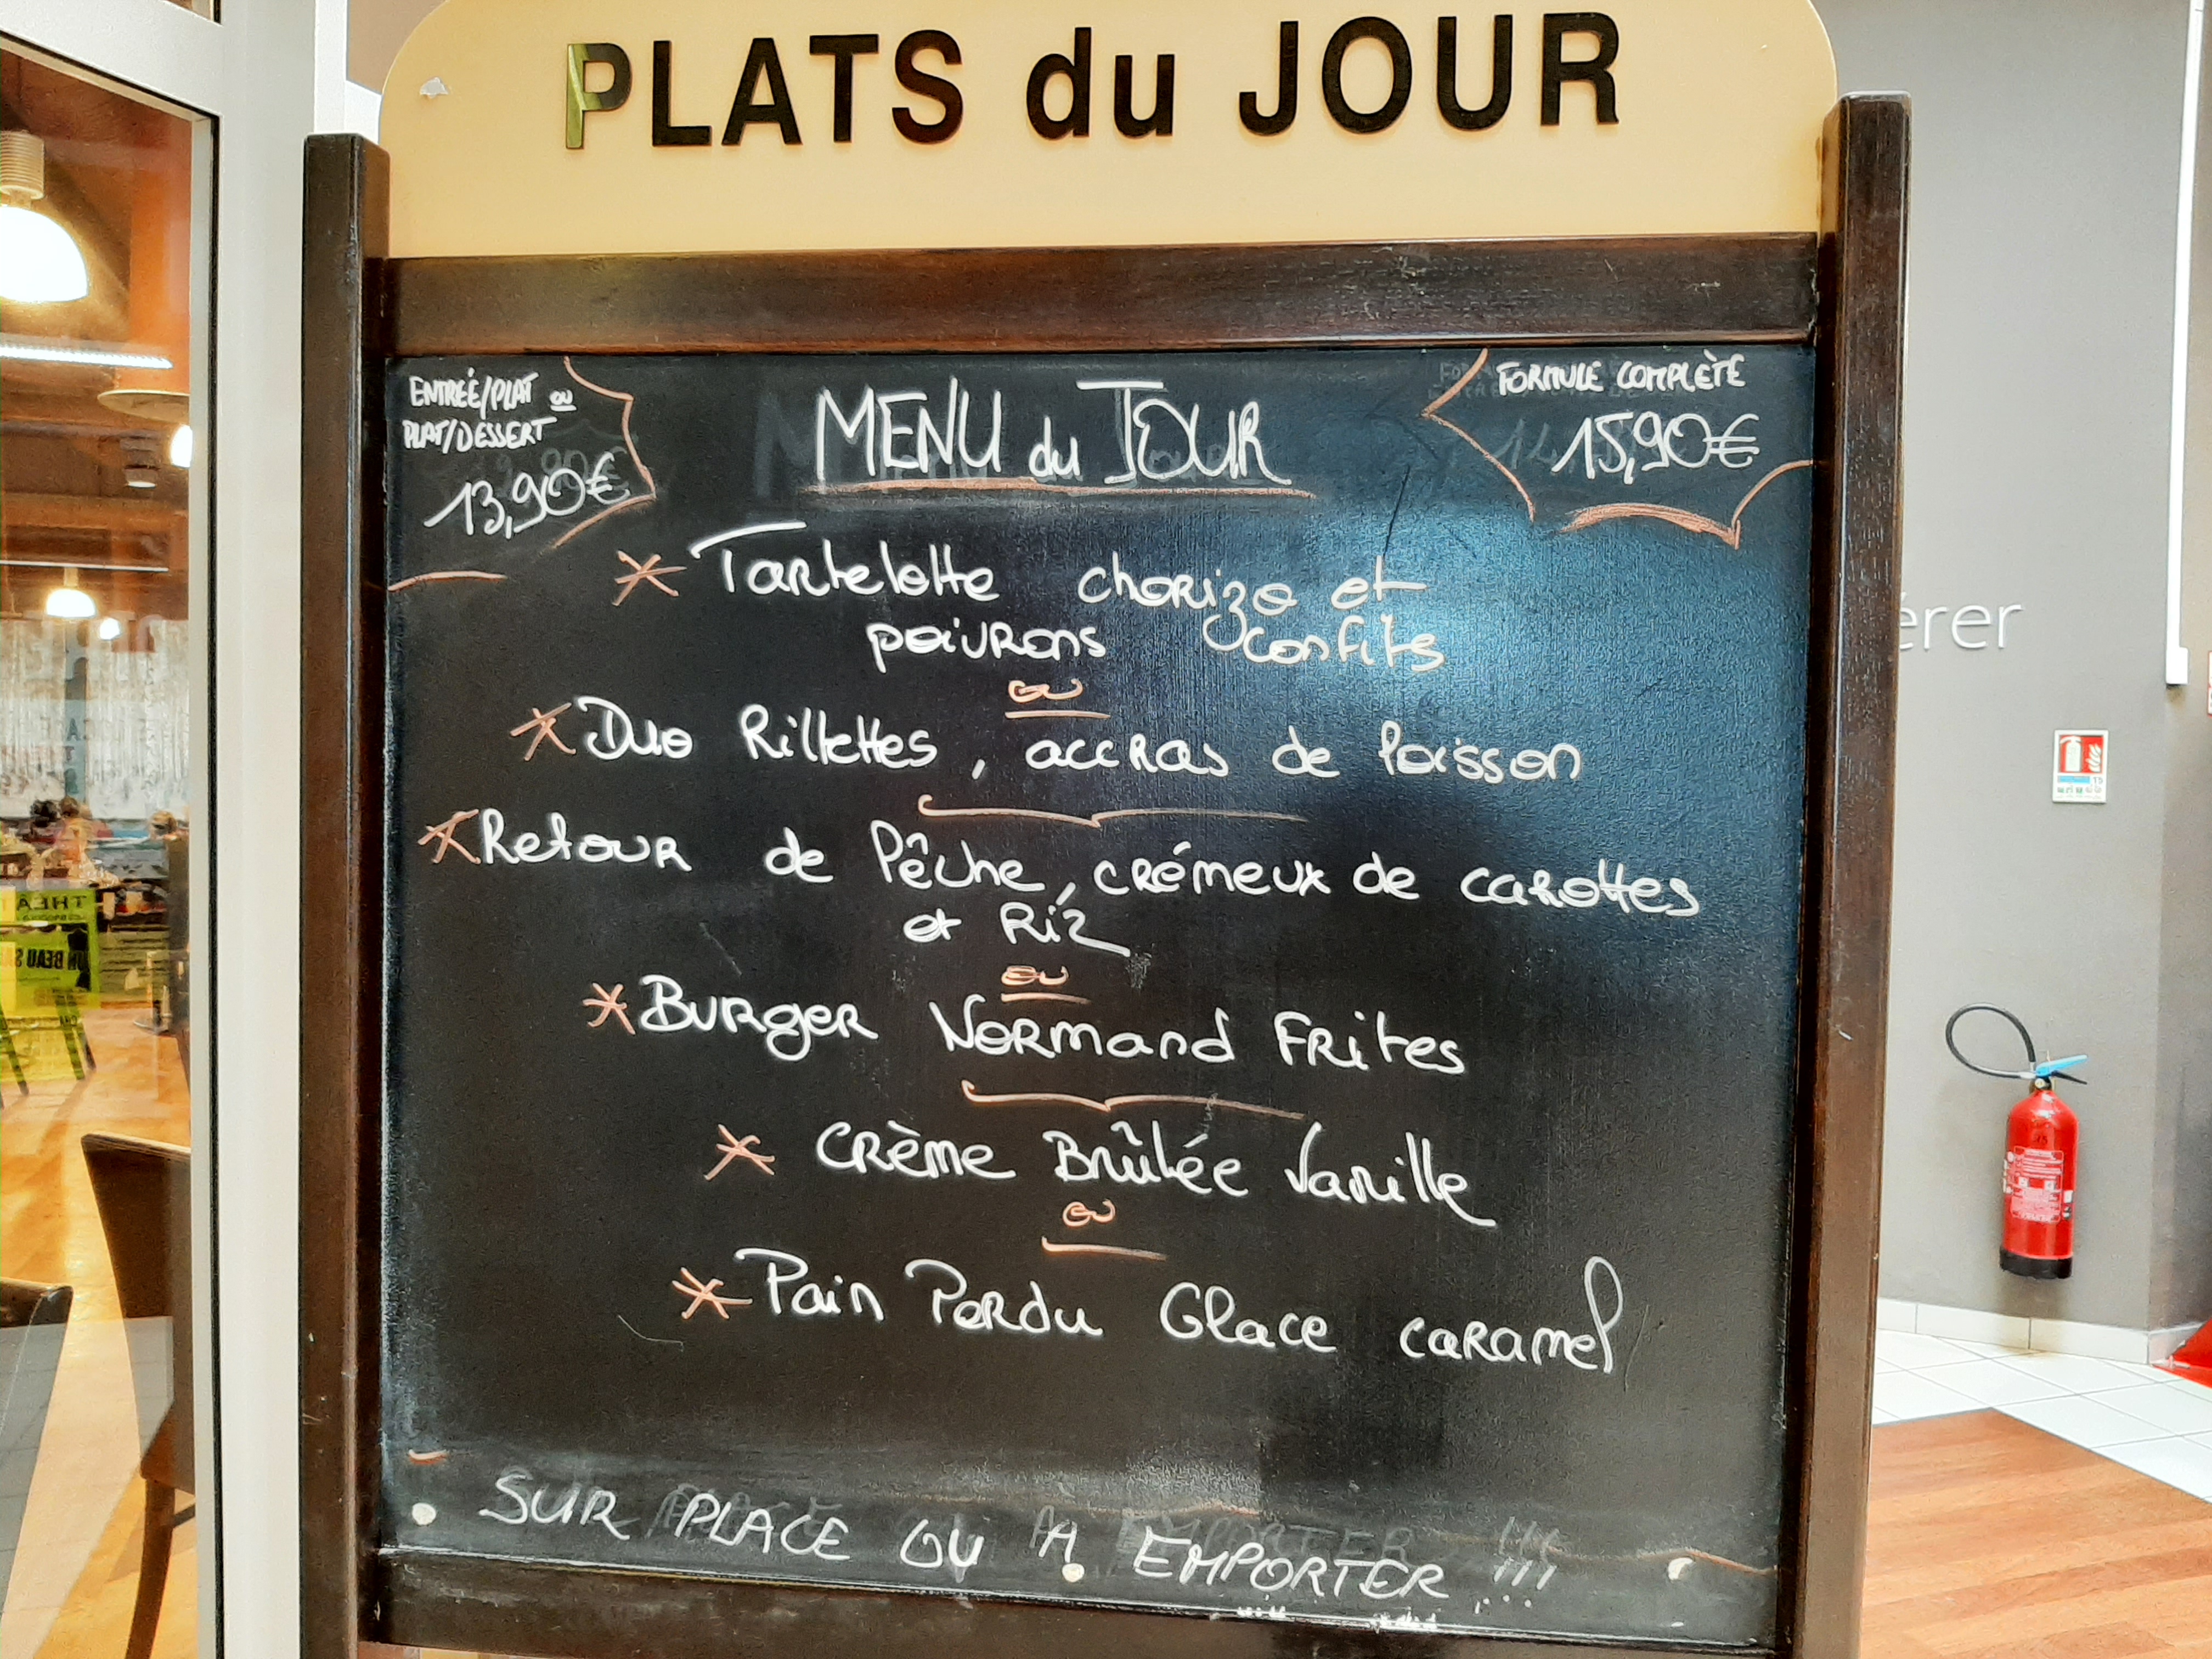 PLATS du JOUR
ENTRÉE/PLAT ou
PLAT/DESSERT
13,90€
MENU du JOUR
FORMULE COMPLÈTE
15,90€
* Tartelette chorizo et
poivrons confits
ou
* Duo Rillettes, accras de Poisson
* Retour de Pêche, crémeux de carottes
et Riz
ou
* Burger Normand Frites
* Crème Brûlée Vanille
ou
* Pain Perdu Glace caramel
SUR PLACE OU A EMPORTER !!!
érer